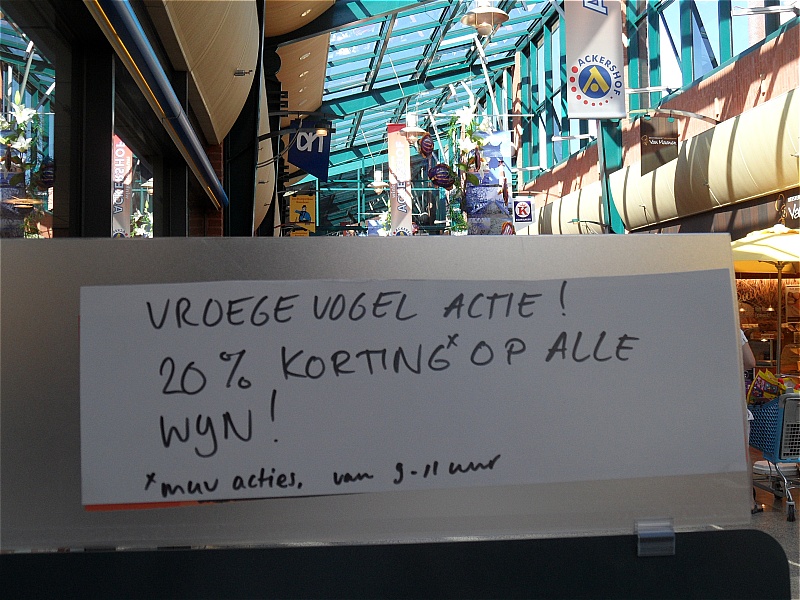 ACKERSHOF
Van Maanen
ACKERSHOF
VROEGE VOGEL ACTIE!
20% KORTING* OP ALLE
WIJN!
*muv acties. van 9-11 uur